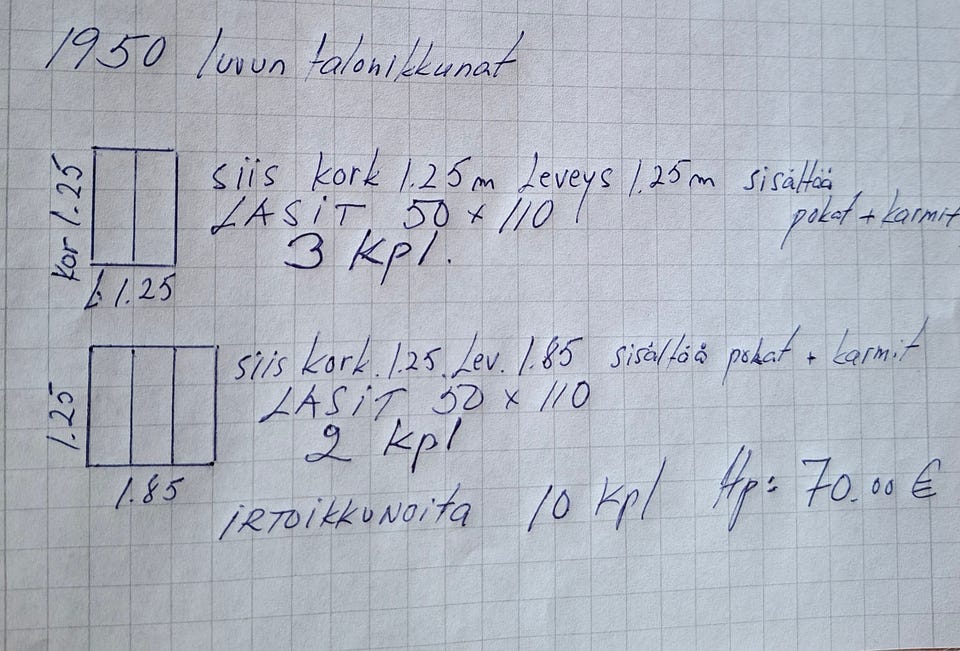 1950 luvun talonikkunat
siis kork 1.25m Leveys 1.25m sisältää
pokat + karmit
kor 1.25
LASiT 50 x 110
3 kpl.
L. 1.25
siis kork. 1.25. Lev. 1.85 sisältää pokat + karmit
1.25
LASiT 50 x 110
2 kpl
1.85
iRTOiKKUNOiTA 10 kpl Hp: 70.00 €